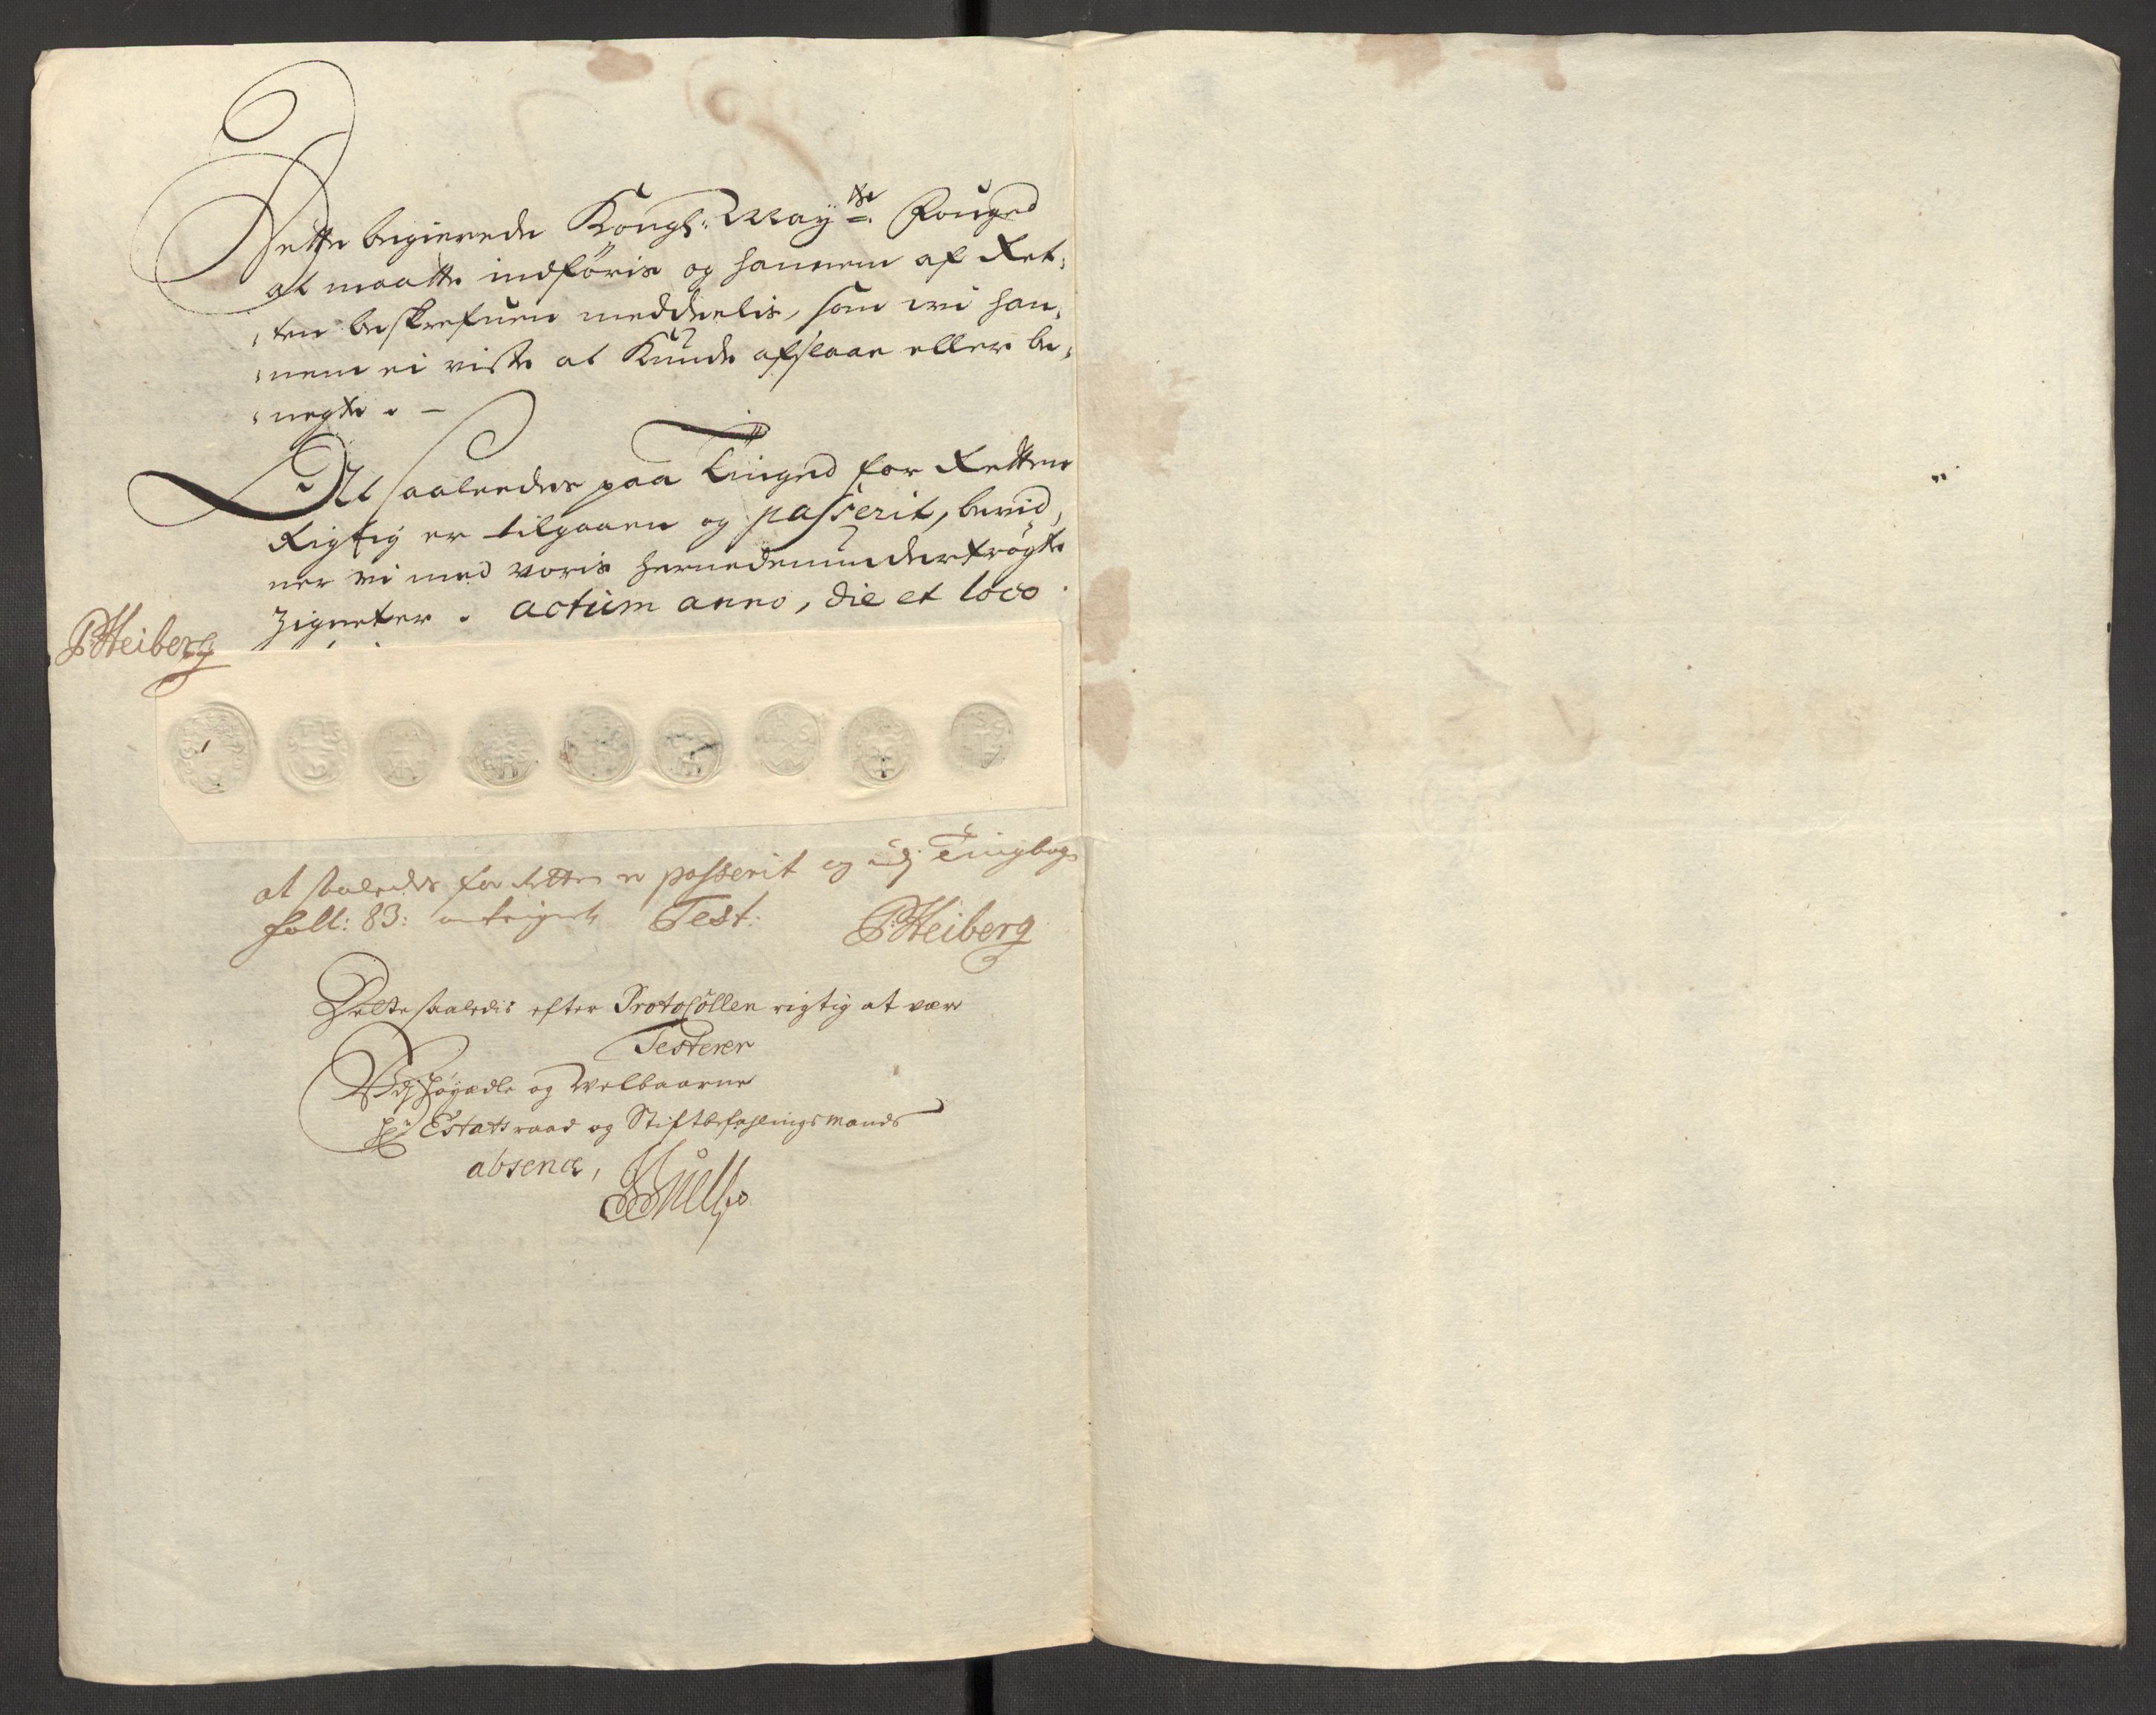 Dette begierede Kongl: May^tz Fouged
at maatte indføris og hannem af Ret,
,ten beskrefuen meddeelis, som wi han,
,nem ei viste at Kunde afslaae eller be,
,negte. –
At saaleedes paa Tinged for Retten
Rigtig er tilgaaen og passerit, bevid,
ner wi med voris hernedenundertrøgte
Zigneter. actum anno, die et loco.
PHeiberg
at saaledes for Retten er passerit og udj Tingbog
foll: 83: anteignet Test: PHeiberg
Dette saaledis efter Protocollen rigtig at være
Testerer
Udj Høyædle og Welbaarne
Hr Estatsraad og Stiftbefahlings Mands
absence,